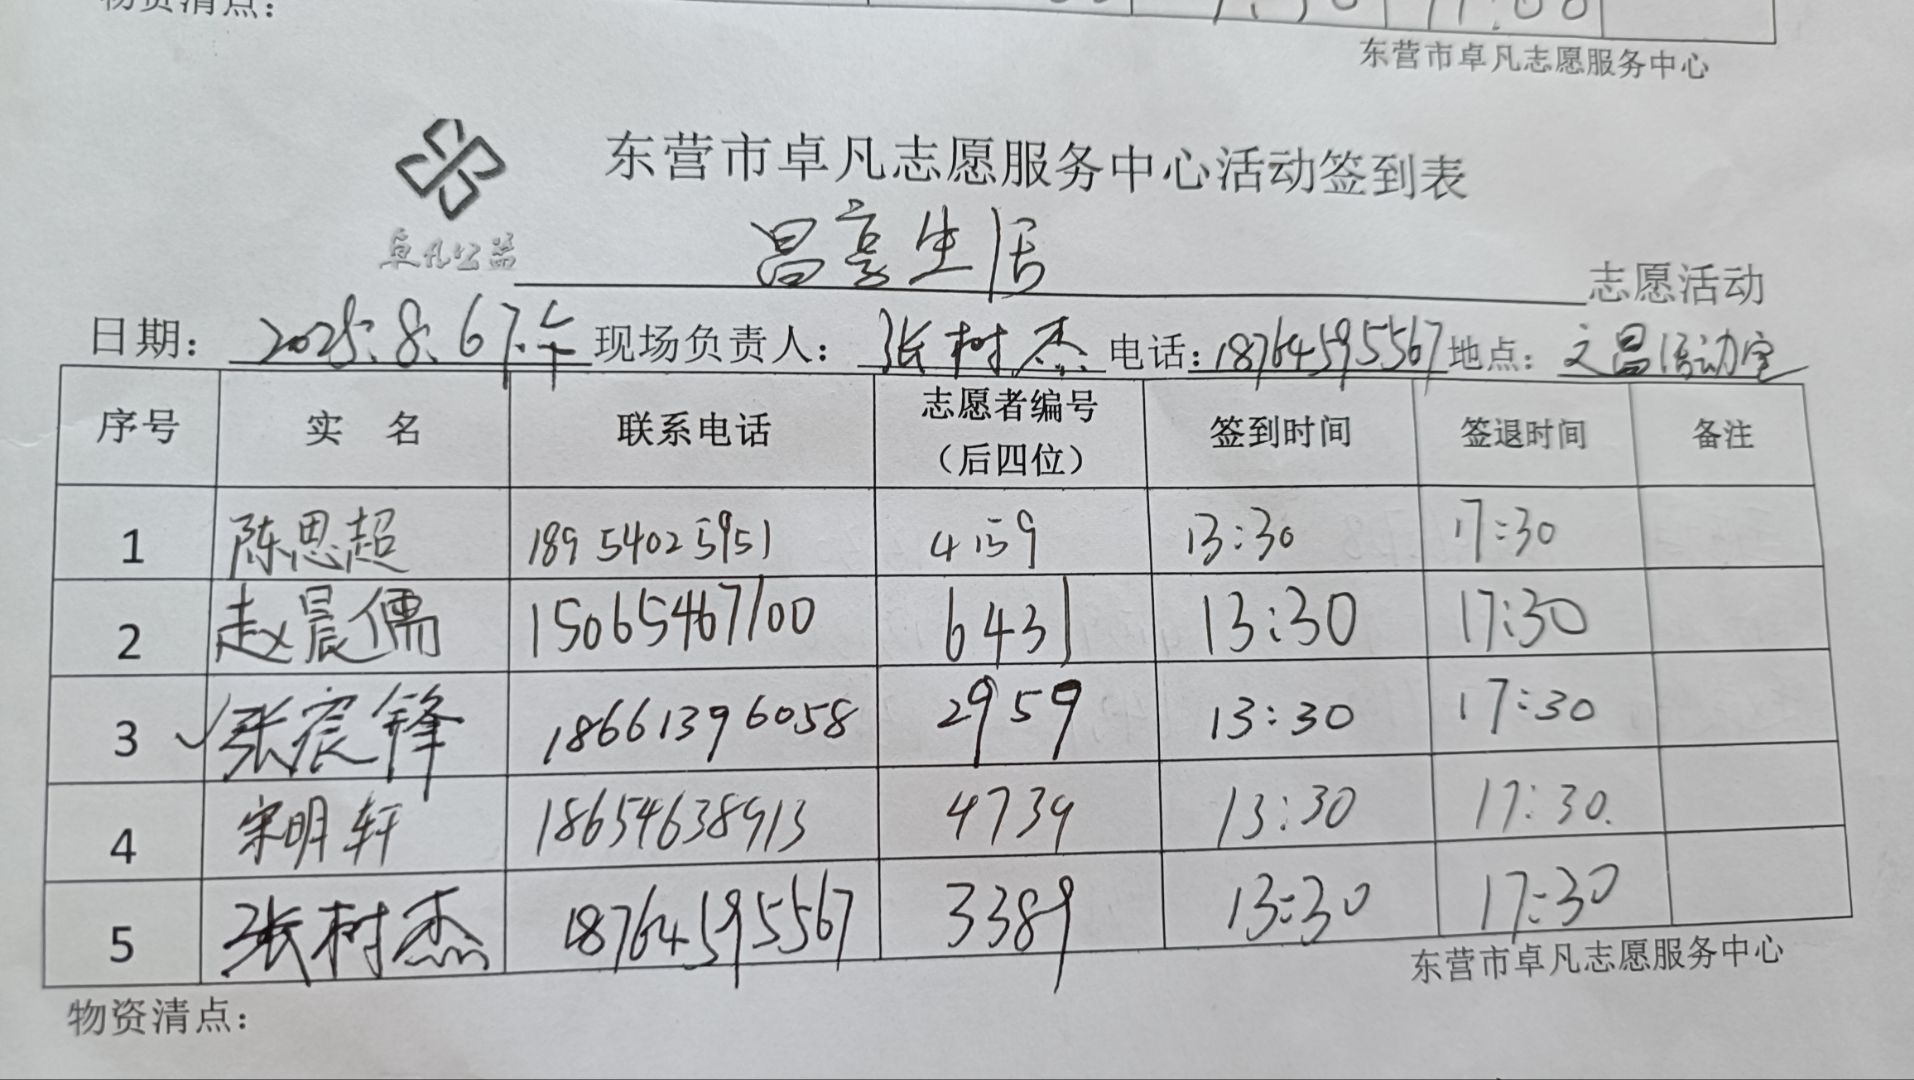 物资清点：
东营市卓凡志愿服务中心
东营市卓凡志愿服务中心活动签到表
卓凡公益
昌享生活 志愿活动
日期：2025.8.6下午 现场负责人：张树杰 电话：18764595567 地点：文昌活动室
序号 实 名 联系电话 志愿者编号（后四位） 签到时间 签退时间 备注
1 陈思超 18954025951 4159 13:30 17:30
2 赵晨儒 15065467100 6431 13:30 17:30
3 张宸锋 18661396058 2959 13:30 17:30
4 宋明轩 18654638913 4739 13:30 17:30.
5 张树杰 18764595567 3389 13:30 17:30
东营市卓凡志愿服务中心
物资清点：